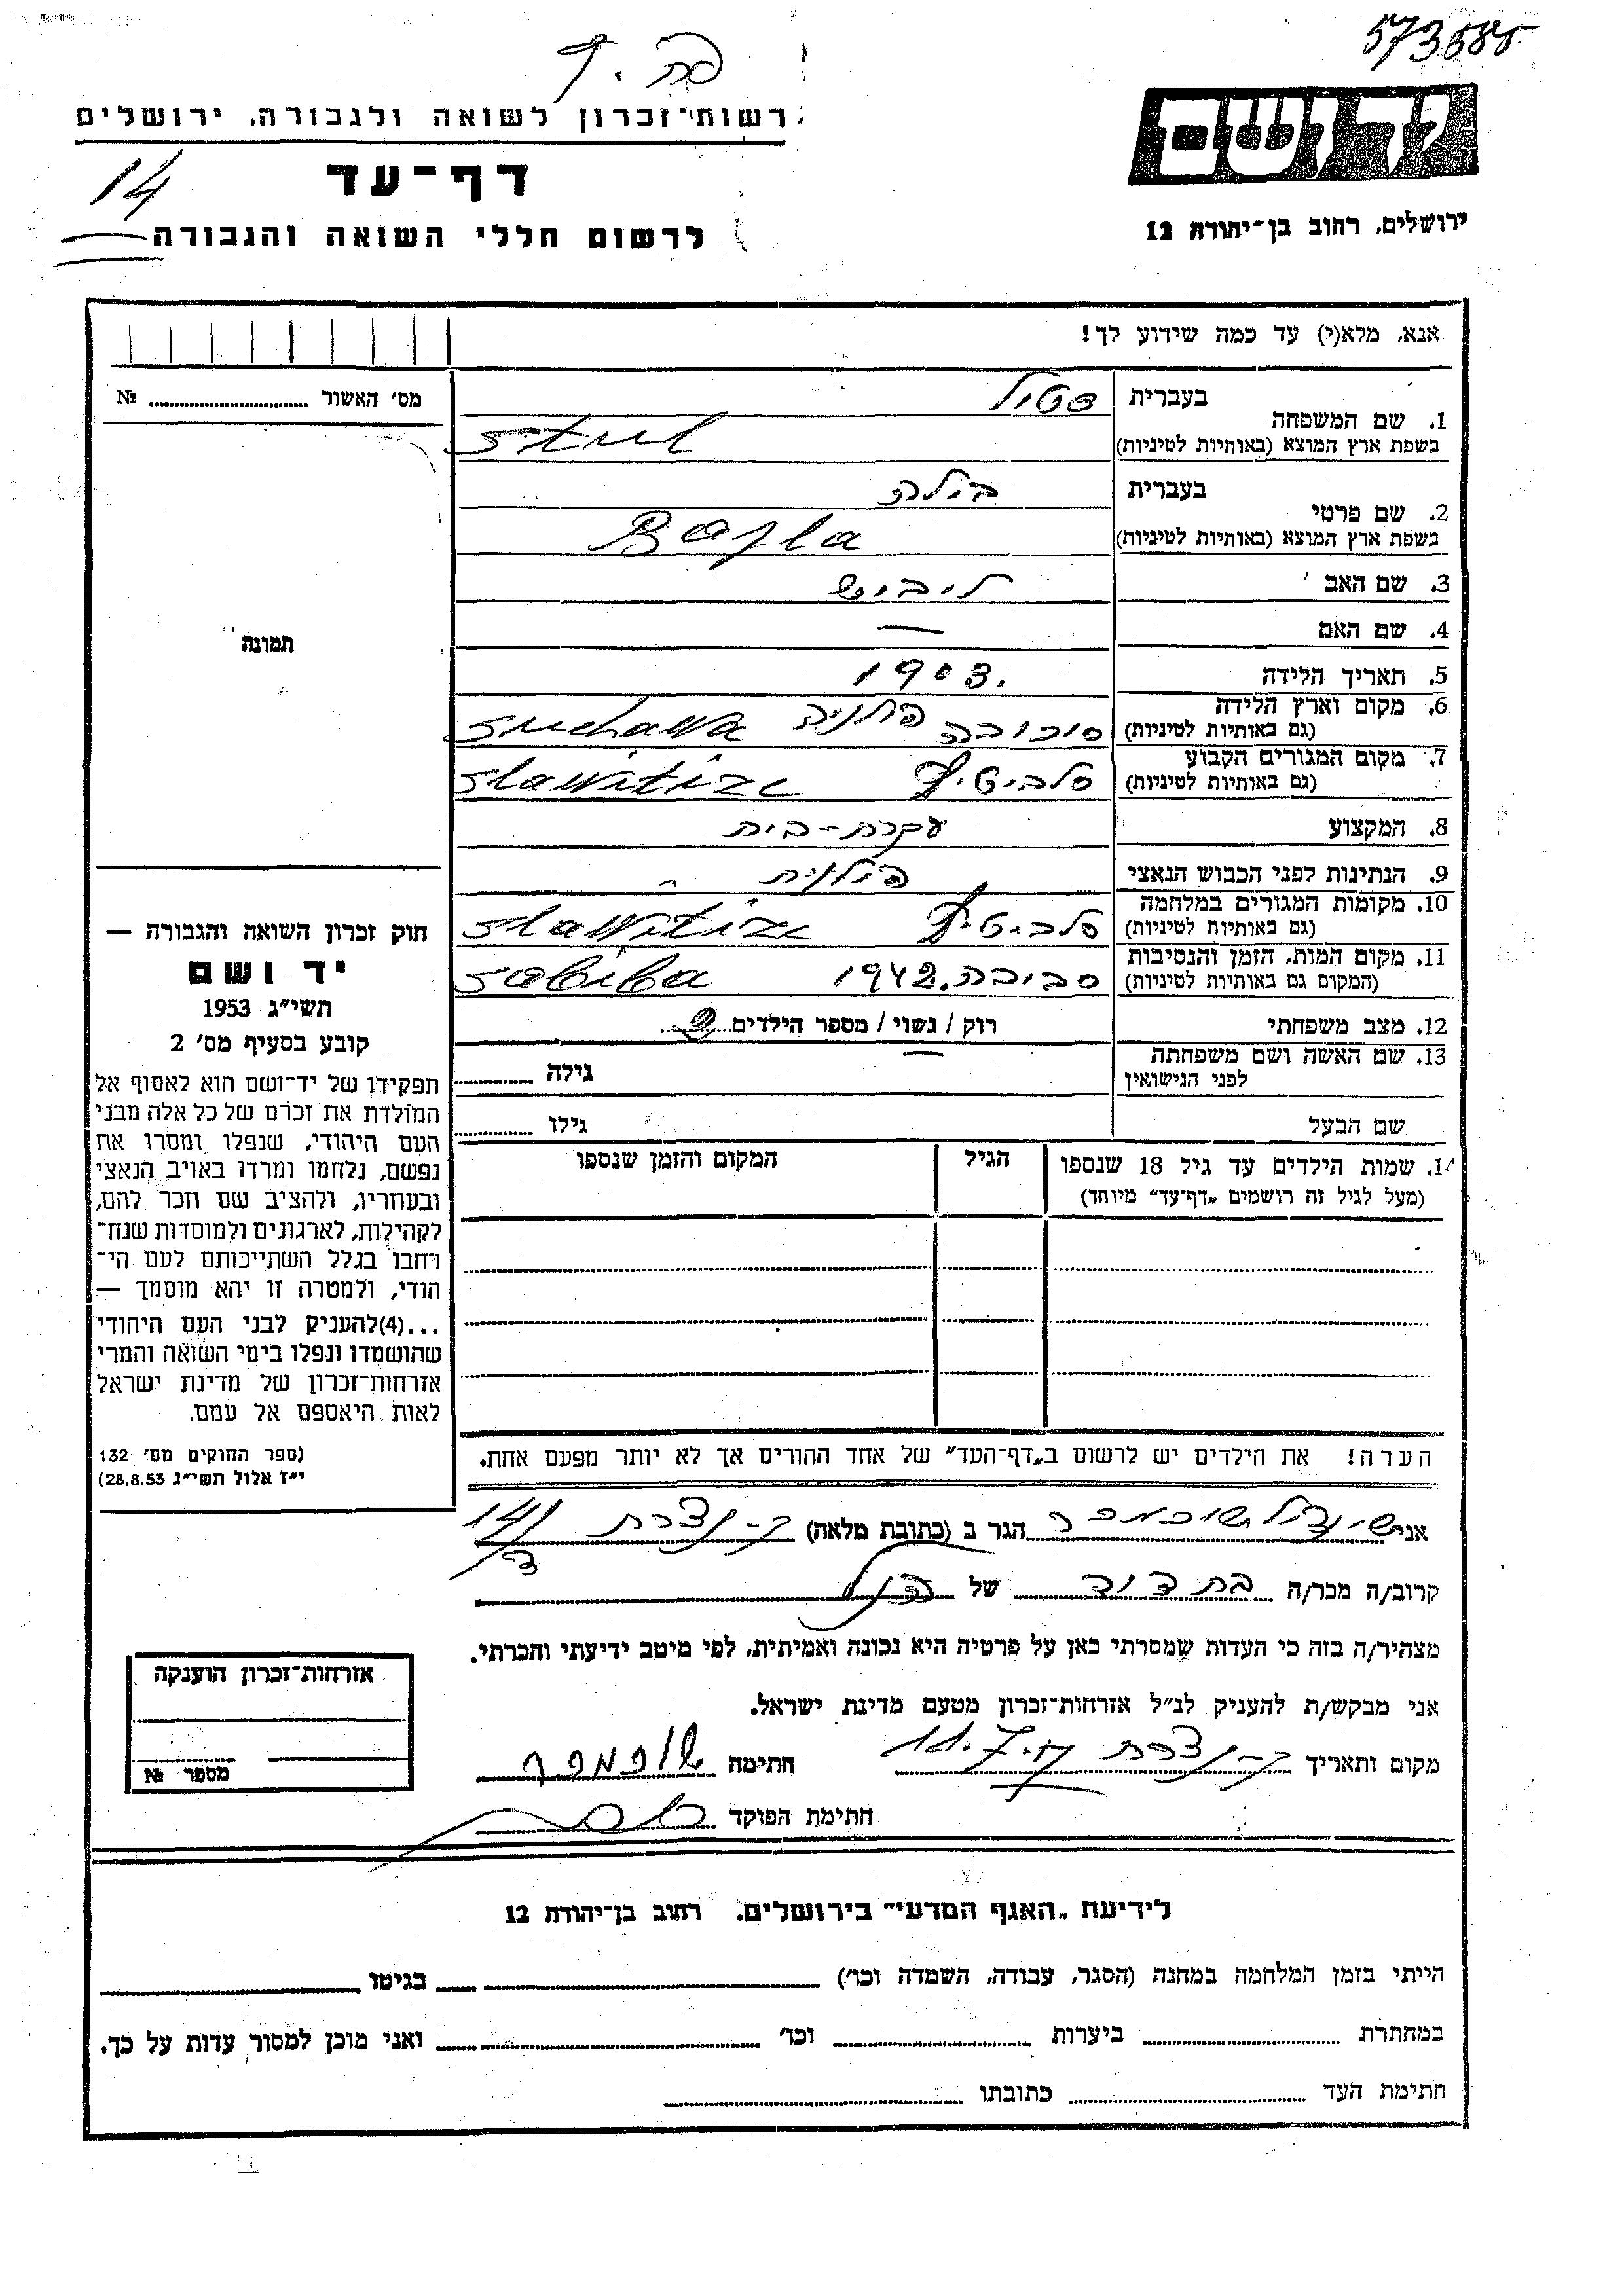 573585
פה. ק
רשות־זכרון לשואה ולגבורה, ירושלים
יד ושם
דף־עד
14
לרשום חללי השואה והגבורה
ירושלים, רחוב בן־יהודה 12
אנא, מלא(י) עד כמה שידוע לך!
מס׳ האשור № 
1. שם המשפחה
בעברית סטול
בשפת ארץ המוצא (באותיות לטיניות) Stul
2. שם פרטי
בעברית בילה
בשפת ארץ המוצא (באותיות לטיניות) Bajla
3. שם האב ליביש
4. שם האם —
5. תאריך הלידה 1903.
6. מקום וארץ הלידה
(גם באותיות לטיניות) סוכובה Suchawa
7. מקום המגורים הקבוע
(גם באותיות לטיניות) סלביטיץ Slawitize
8. המקצוע עקרת-בית
9. הנתינות לפני הכבוש הנאצי פולנית
10. מקומות המגורים במלחמה
(גם באותיות לטיניות) סלביטיץ Slawitize
11. מקום המות, הזמן והנסיבות
(המקום גם באותיות לטיניות) סביבה. 1942 Sobiba
12. מצב משפחתי רוק / נשוי / מספר הילדים 2
13. שם האשה ושם משפחתה
לפני הנישואין — גילה
שם הבעל גילו
14. שמות הילדים עד גיל 18 שנספו
(מעל לגיל זה רושמים „דף־עד” מיוחד)
הגיל
המקום והזמן שנספו
הערה! את הילדים יש לרשום ב„דף־העד” של אחד ההורים אך לא יותר מפעם אחת.
תמונה
חוק זכרון השואה והגבורה —
יד ושם
תשי״ג 1953
קובע בסעיף מס׳ 2
תפקידו של יד־ושם הוא לאסוף אל
המולדת את זכרם של כל אלה מבני
העם היהודי, שנפלו ומסרו את
נפשם, נלחמו ומרדו באויב הנאצי
ובעוזריו, ולהציב שם וזכר להם,
לקהילות, לארגונים ולמוסדות שנח־
רחבו בגלל השתייכותם לעם הי־
הודי, ולמטרה זו יהא מוסמך —
...(4)להעניק לבני העם היהודי
שהושמדו ונפלו בימי השואה והמרי
אזרחות־זכרון של מדינת ישראל
לאות היאספם אל עמם.
(ספר החוקים מס׳ 132
י״ז אלול תשי״ג 28.8.53)
אני שוכמכר הגר ב (כתובת מלאה) ק-נצרת 14/
קרוב/ה מכר/ה בת דוד של הנ״ל
מצהיר/ה בזה כי העדות שמסרתי כאן על פרטיה היא נכונה ואמיתית, לפי מיטב ידיעתי והכרתי.
אני מבקש/ת להעניק לנ״ל אזרחות־זכרון מטעם מדינת ישראל.
מקום ותאריך ק-נצרת 11.7. חתימה שוכמכר
חתימת הפוקד
אזרחות־זכרון הוענקה
מספר №
לידיעת „האגף המדעי” בירושלים. רחוב בן־יהודה 12
הייתי בזמן המלחמה במחנה (הסגר, עבודה, השמדה וכו׳) בגיטו
במחתרת ביערות וכו׳ ואני מוכן למסור עדות על כך.
חתימת העד כתובתו